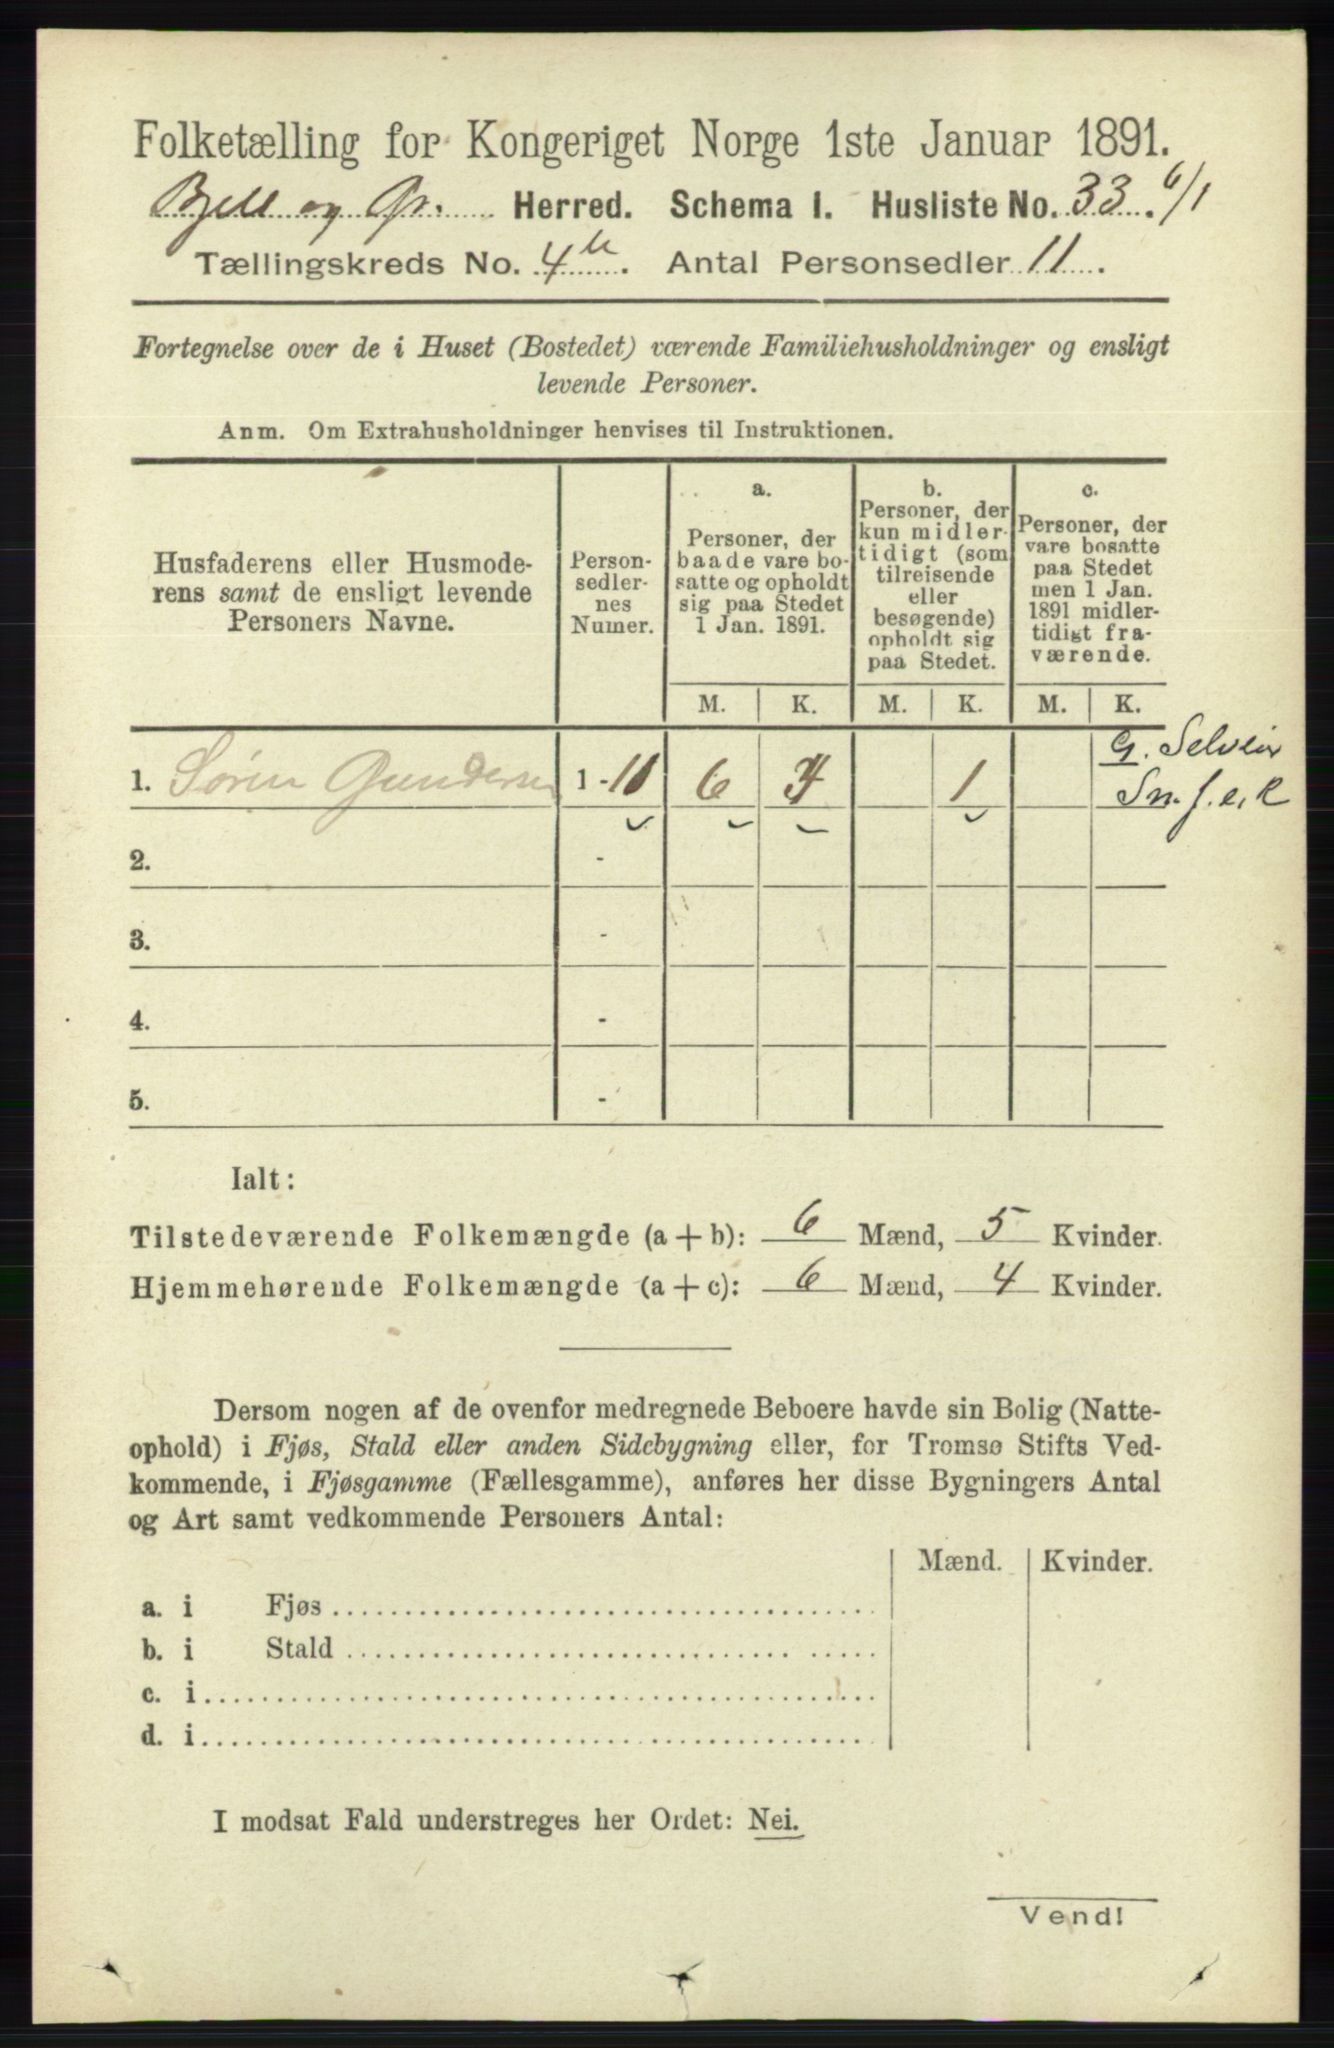 Folketælling for Kongeriget Norge 1ste Januar 1891.
Bjell og Gr. Herred. Schema I. Husliste No. 33. 6/1
Tællingskreds No. 4b. Antal Personsedler 11.
Fortegnelse over de i Huset (Bostedet) værende Familiehusholdninger og ensligt
levende Personer.
Anm. Om Extrahusholdninger henvises til Instruktionen.
Husfaderens eller Husmode-
rens samt de ensligt levende
Personers Navne.
Person-
sedler-
nes
Numer.
a.
Personer, der
baade vare bo-
satte og opholdt
sig paa Stedet
1 Jan. 1891.
b.
Personer, der
kun midler-
tidigt (som
tilreisende
eller
besøgende)
opholdt sig
paa Stedet.
c.
Personer, der
vare bosatte
paa Stedet
men 1 Jan.
1891 midler-
tidigt fra-
værende.
M. K. M. K. M. K.
1. Søren Gundersen 1 - 11 6 4 1
G. Selveier
Sn. f. e. k
2. -
3. -
4. -
5. -
Ialt:
Tilstedeværende Folkemængde (a + b): 6 Mænd, 5 Kvinder.
Hjemmehørende Folkemængde (a + c): 6 Mænd, 4 Kvinder.
Dersom nogen af de ovenfor medregnede Beboere havde sin Bolig (Natte-
ophold) i Fjøs, Stald eller anden Sidebygning eller, for Tromsø Stifts Ved-
kommende, i Fjøsgamme (Fællesgamme), anføres her disse Bygningers Antal
og Art samt vedkommende Personers Antal:
Mænd. Kvinder.
a. i Fjøs
b. i Stald
c. i
d. i
I modsat Fald understreges her Ordet: Nei.
Vend!